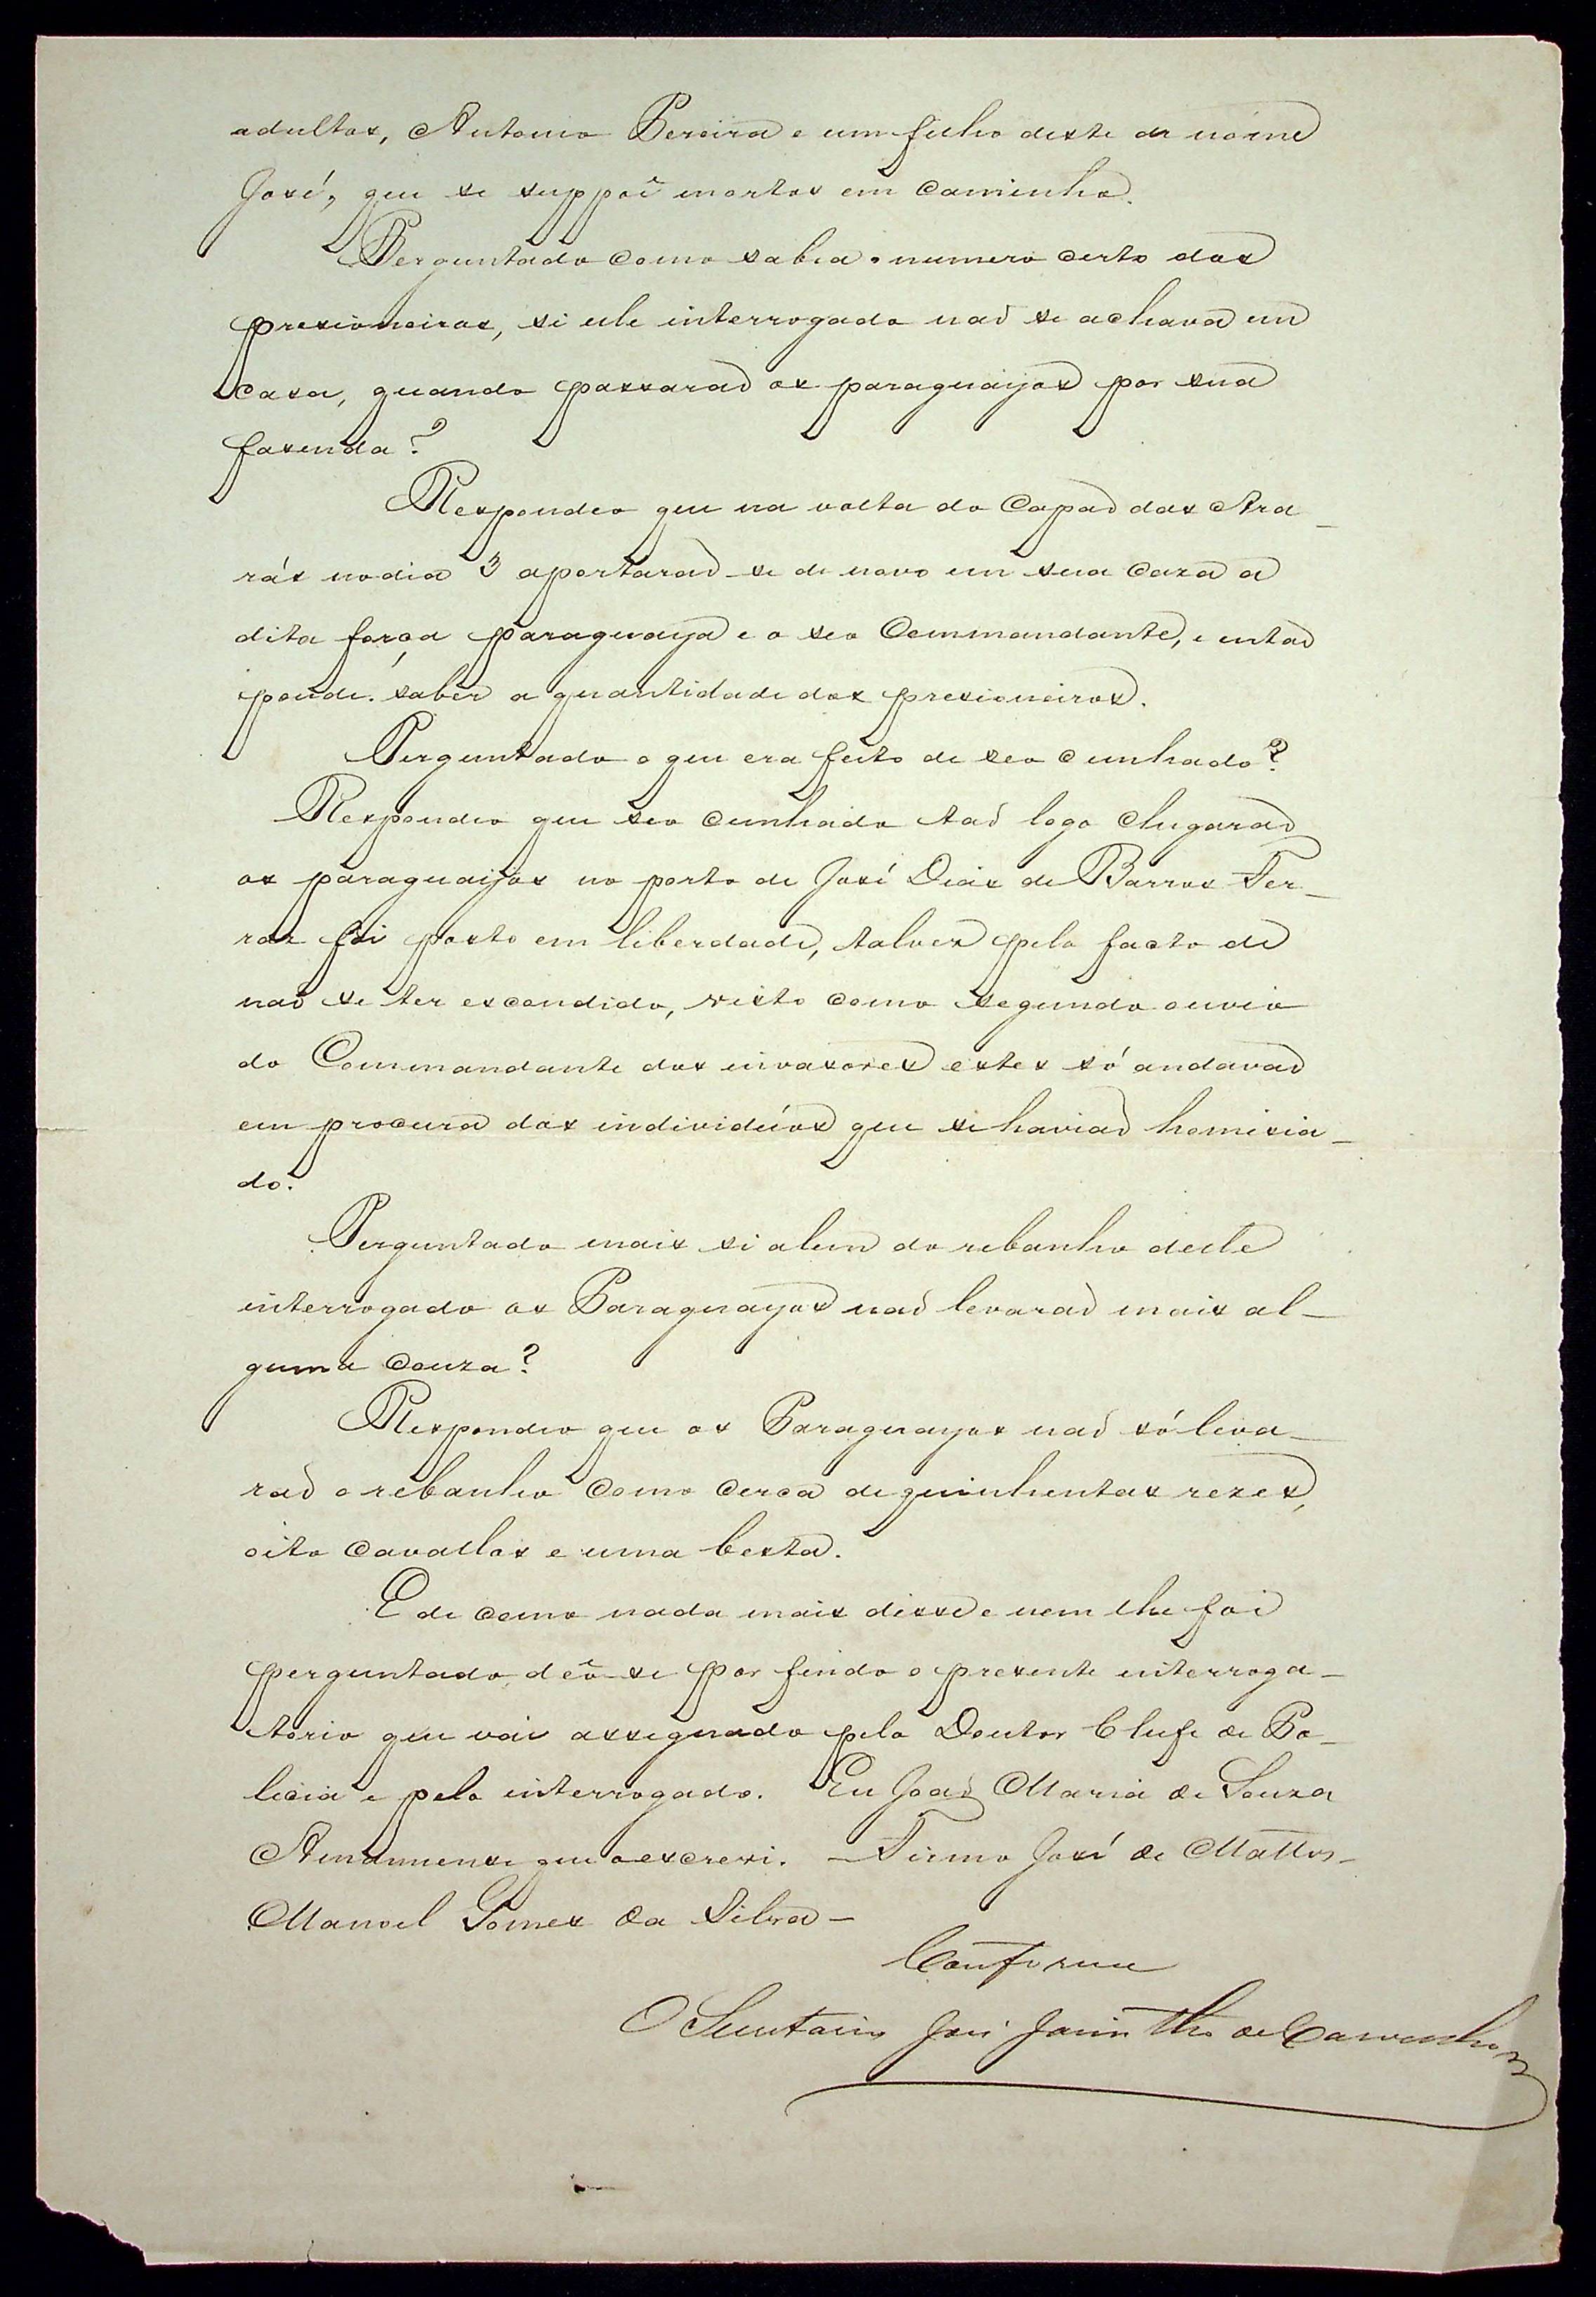 adultos, Antonio Pereira e um filho deste de nome
José, que se suppoê mortos em caminho.
Perguntado como sabia o numero certo dos
presioneiros, si elle interrogado naõ se achava em
casa, quando passaraõ os paraguayos por sua
fasenda?
Respondeo que na volta do Capaõ das Ara-
rás no dia 3 aportaraõ-se de novo em sua caza a
dita força paraguaya e o seo Commandante, e entaõ
poude saber a quantidade dos presioneiros.
Perguntado o que era feito de seo cunhado?
Respondeo que seo cunhado taõ logo chegaraõ
os paraguayos no porto de José Dias de Barros Fer-
raz foi posto em liberdade, talvez pelo facto de
naõ se ter escondido, visto como segundo ouvio
do Commandante dos invasores estes só andavaõ
em procura dos individúos que se haviaõ homisia-
do.
Perguntado mais si alem do rebanho delle
interrogado os Paraguayos naõ levaraõ mais al-
guma couza?
Respondeo que os Paraguayos naõ só leva-
raõ o rebanho como cerca de quinhentas rezes,
oito cavallos e uma besta.
E de como nada mais disse e nem lhe foi
perguntado, deô-se por findo o presente interroga-
torio que vai assignado pelo Doutor Chefe de Po-
licia e pelo interrogado. Eu Joaõ Maria de Souza
que o escrevi. - Firmo José de Mattos-
Manoel Gomes da Silva-
Conforme
O Secretario José Jacintho de Carvalho